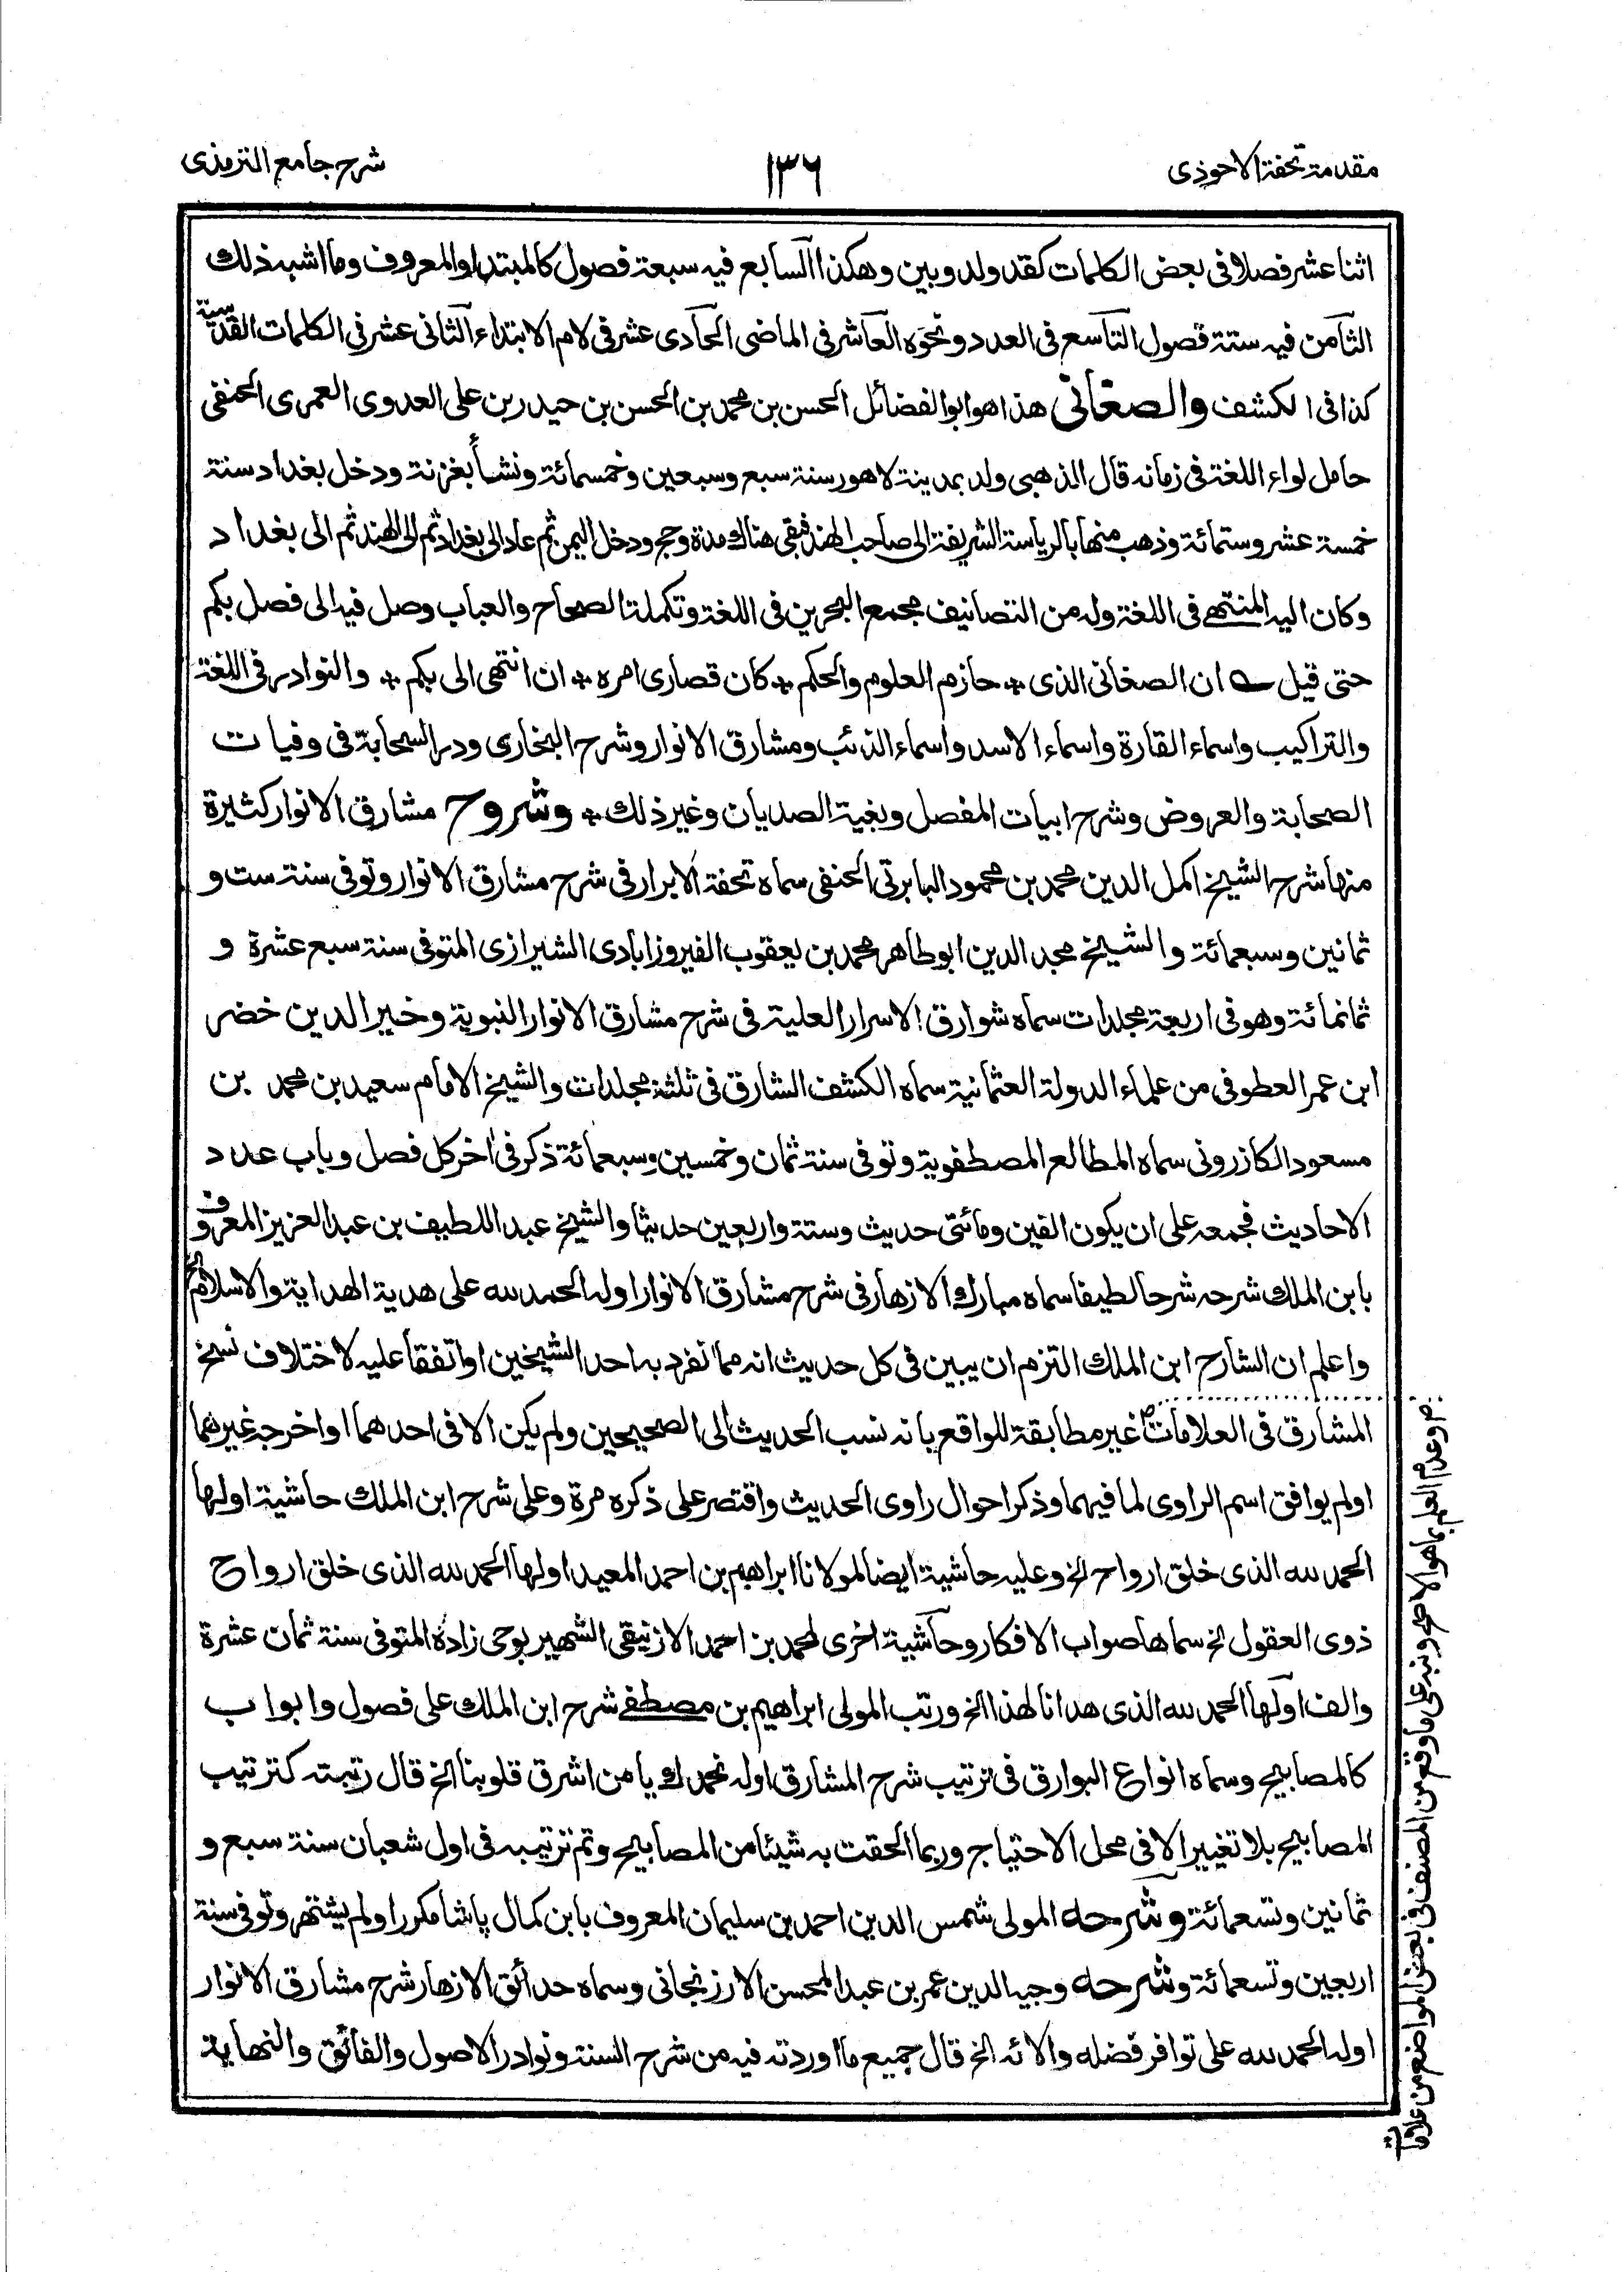 مقدمة تحفة الاحوذى
١٣٦
شرح جامع الترمذى
اثنا عشر فصلا فى بعض الكلمات كقد ولد وبين وهكذا السابع فيه سبعة فصول كالمبتدا والمعروف وما اشبه ذلك
الثامن فيه ستة فصول التاسع فى العدد ونحوه العاشر فى الماضى الحادى عشر فى لام الابتداء الثانى عشر فى الكلمات القدسية
كذا فى الكشف والصغانى هذا هو ابوالفضائل الحسن بن محمد بن الحسن بن حيدر بن على العدوى العمرى الحنفى
حامل لواء اللغة فى زمانه قال الذهبى ولد بمدينة لاهور سنة سبع وسبعين وخمسمائة ونشأ بغزنة ودخل بغداد سنة
خمسة عشر وستمائة وذهب منها بالرياسة الشريفة الى صاحب الهند فبقى هناك مدة وحج ودخل اليمن ثم عاد الى بغداد ثم الى الهند ثم الى بغداد
وكان اليه المنتهى فى اللغة وله من التصانيف مجمع البحرين فى اللغة وتكملة الصحاح والعباب وصل فيه الى فصل بكم
حتى قيل ان الصغانى الذى * حازم العلوم والحكم * كان قصارى امره * ان انتهى الى بكم * والنوادر فى اللغة
والتراكيب واسماء القارة واسماء الاسد واسماء الذئب ومشارق الانوار وشرح البخارى ودر السحابة فى وفيات
الصحابة والعروض وشرح ابيات المفصل وبغية الصديان وغير ذلك * وشروح مشارق الانوار كثيرة
منها شرح الشيخ اكمل الدين محمد بن محمود البابرتى الحنفى سماه تحفة الابرار فى شرح مشارق الانوار وتوفى سنة ست و
ثمانين وسبعمائة والشيخ مجد الدين ابوطاهر محمد بن يعقوب الفيروزابادى الشيرازى المتوفى سنة سبع عشرة و
ثمانمائة وهو فى اربعة مجلدات سماه شوارق الاسرار العلية فى شرح مشارق الانوار النبوية وخير الدين خضر
ابن عمر العطوفى من علماء الدولة العثمانية سماه الكشف الشارق فى ثلثة مجلدات والشيخ الامام سعيد بن محمد بن
مسعود الكازرونى سماه المطالع المصطفوية وتوفى سنة ثمان وخمسين وسبعمائة ذكر فى اخر كل فصل وباب عدد
الاحاديث فجمعه على ان يكون الفين ومائتى حديث وستة واربعين حديثا والشيخ عبد اللطيف بن عبد العزيز المعروف
بابن الملك شرحه شرحا لطيفا سماه مبارك الازهار فى شرح مشارق الانوار اوله الحمد لله على هدية الهداية والاسلام الخ
واعلم ان الشارح ابن الملك التزم ان يبين فى كل حديث انه مما تفرد به احد الشيخين او اتفقا عليه لاختلاف نسخ
المشارق فى العلامات غير مطابقة للواقع بانه نسب الحديث الى الصحيحين ولم يكن الا فى احدهما او اخرجه غيرهما
اولم يوافق اسم الراوى لما فيهما وذكر احوال راوى الحديث واقتصر على ذكره مرة وعلى شرح ابن الملك حاشية اولها
الحمد لله الذى خلق ارواح الخ وعليه حاشية ايضا لمولانا ابراهيم بن احمد المعيد اولها الحمد لله الذى خلق ارواح
ذوى العقول الخ سماها صواب الافكار وحاشية اخرى لمحمد بن احمد الازنيقى الشهير بوحى زاده المتوفى سنة ثمان عشرة
والف اولها الحمد لله الذى هدانا لهذا الخ ورتب المولى ابراهيم بن مصطفى شرح ابن الملك على فصول وابواب
كالمصابيح وسماه انواع البوارق فى ترتيب شرح المشارق اوله نحمدك يا من اشرق قلوبنا الخ قال رتبته كترتيب
المصابيح بلا تغيير الا فى محل الاحتياج وربما الحقت به شيئا من المصابيح وتم ترتيبه فى اول شعبان سنة سبع و
ثمانين وتسعمائة وشرحه المولى شمس الدين احمد بن سليمان المعروف بابن كمال پاشا مكررا ولم يشتهر وتوفى سنة
اربعين وتسعمائة وشرحه وجيه الدين عمر بن عبد المحسن الارزنجانى وسماه حدائق الازهار شرح مشارق الانوار
اوله الحمد لله على توافر فضله والائه الخ قال جميع ما اوردته فيه من شرح السنة ونوادر الاصول والفائق والنهاية
وعدم العلم بما هو الاصح ونبه على ما وقع من المصنف فى بعض المواضع من علامات